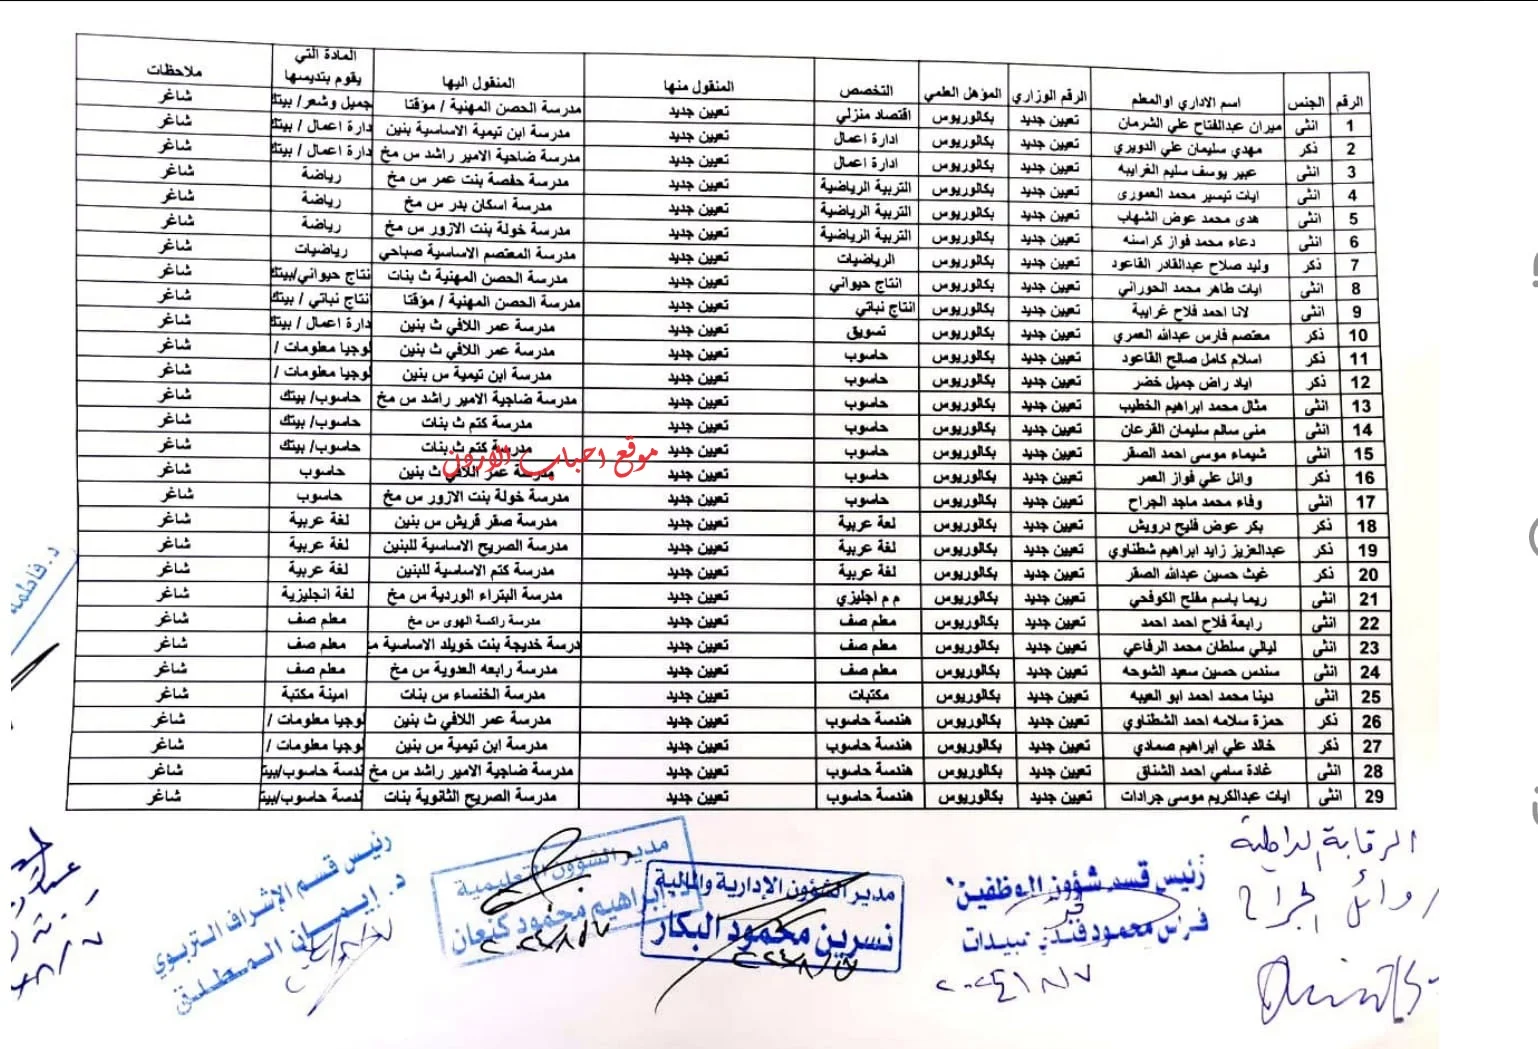 الرقم الجنس اسم الاداري او المعلم الرقم الوزاري المؤهل العلمي التخصص المنقول منها المنقول اليها المادة التي يقوم بتديسها ملاحظات
1 انثى ميران عبدالفتاح علي الشرمان تعيين جديد بكالوريوس اقتصاد منزلي تعيين جديد مدرسة الحصن المهنية / مؤقتا جميل وشعر/ بيتك شاغر
2 ذكر مهدي سليمان علي الدويري تعيين جديد بكالوريوس ادارة اعمال تعيين جديد مدرسة ابن تيمية الاساسية بنين دارة اعمال / بيتك شاغر
3 انثى عبير يوسف سليم الغرايبه تعيين جديد بكالوريوس ادارة اعمال تعيين جديد مدرسة ضاحية الامير راشد س مخ دارة اعمال / بيتك شاغر
4 انثى ايات تيسير محمد العمورى تعيين جديد بكالوريوس التربية الرياضية تعيين جديد مدرسة حفصة بنت عمر س مخ رياضة شاغر
5 انثى هدى محمد عوض الشهاب تعيين جديد بكالوريوس التربية الرياضية تعيين جديد مدرسة اسكان بدر س مخ رياضة شاغر
6 انثى دعاء محمد فواز كراسنه تعيين جديد بكالوريوس التربية الرياضية تعيين جديد مدرسة خولة بنت الازور س مخ رياضة شاغر
7 ذكر وليد صلاح عبدالقادر القاعود تعيين جديد بكالوريوس الرياضيات تعيين جديد مدرسة المعتصم الاساسية صباحي رياضيات شاغر
8 انثى ايات طاهر محمد الحوراني تعيين جديد بكالوريوس انتاج حيواني تعيين جديد مدرسة الحصن المهنية ث بنات نتاج حيواني/بيتك شاغر
9 انثى لانا احمد فلاح غرايبة تعيين جديد بكالوريوس انتاج نباتي تعيين جديد مدرسة الحصن المهنية / مؤقتا نتاج نباتي / بيتك شاغر
10 ذكر معتصم فارس عبدالله العمري تعيين جديد بكالوريوس تسويق تعيين جديد مدرسة عمر اللافي ث بنين دارة اعمال / بيتك شاغر
11 ذكر اسلام كامل صالح القاعود تعيين جديد بكالوريوس حاسوب تعيين جديد مدرسة عمر اللافي ث بنين لوجيا معلومات / شاغر
12 ذكر اياد راض جميل خضر تعيين جديد بكالوريوس حاسوب تعيين جديد مدرسة ابن تيمية س بنين لوجيا معلومات / شاغر
13 انثى مثال محمد ابراهيم الخطيب تعيين جديد بكالوريوس حاسوب تعيين جديد مدرسة ضاحية الامير راشد س مخ حاسوب/ بيتك شاغر
14 انثى منى سالم سليمان القرعان تعيين جديد بكالوريوس حاسوب تعيين جديد مدرسة كتم ث بنات حاسوب/ بيتك شاغر
15 انثى شيماء موسى احمد الصقر تعيين جديد بكالوريوس حاسوب تعيين جديد مدرسة كتم ث بنات حاسوب/ بيتك شاغر
موقع احباب الاردن
16 ذكر وائل علي فواز العمر تعيين جديد بكالوريوس حاسوب تعيين جديد مدرسة عمر اللافي ث بنين حاسوب شاغر
17 انثى وفاء محمد ماجد الجراح تعيين جديد بكالوريوس حاسوب تعيين جديد مدرسة خولة بنت الازور س مخ حاسوب شاغر
18 ذكر بكر عوض فليح درويش تعيين جديد بكالوريوس لغة عربية تعيين جديد مدرسة صقر قريش س بنين لغة عربية شاغر
19 ذكر عبدالعزيز زايد ابراهيم شطناوي تعيين جديد بكالوريوس لغة عربية تعيين جديد مدرسة الصريح الاساسية للبنين لغة عربية شاغر
20 ذكر غيث حسين عبدالله الصقر تعيين جديد بكالوريوس لغة عربية تعيين جديد مدرسة كتم الاساسية للبنين لغة عربية شاغر
21 انثى ريما باسم مفلح الكوفحي تعيين جديد بكالوريوس م م اجليزي تعيين جديد مدرسة البتراء الوردية س مخ لغة انجليزية شاغر
22 انثى رابعة فلاح احمد احمد تعيين جديد بكالوريوس معلم صف تعيين جديد مدرسة راكسة الهوى س مخ معلم صف شاغر
23 انثى ليالي سلطان محمد الرفاعي تعيين جديد بكالوريوس معلم صف تعيين جديد درسة خديجة بنت خويلد الاساسية مخ معلم صف شاغر
24 انثى سندس حسين سعيد الشوحه تعيين جديد بكالوريوس معلم صف تعيين جديد مدرسة رابعه العدوية س مخ معلم صف شاغر
25 انثى دينا محمد احمد ابو العيبه تعيين جديد بكالوريوس مكتبات تعيين جديد مدرسة الخنساء س بنات امينة مكتبة شاغر
26 ذكر حمزة سلامه احمد الشطناوي تعيين جديد بكالوريوس هندسة حاسوب تعيين جديد مدرسة عمر اللافي ث بنين لوجيا معلومات / شاغر
27 ذكر خالد علي ابراهيم صمادي تعيين جديد بكالوريوس هندسة حاسوب تعيين جديد مدرسة ابن تيمية س بنين لوجيا معلومات / شاغر
28 انثى غادة سامي احمد الشناق تعيين جديد بكالوريوس هندسة حاسوب تعيين جديد مدرسة ضاجية الامير راشد س مخ ندسة حاسوب/بيتك شاغر
29 انثى ايات عبدالكريم موسى جرادات تعيين جديد بكالوريوس هندسة حاسوب تعيين جديد مدرسة الصريح الثانوية بنات ندسة حاسوب/بيتك شاغر
د. فاطمه
الرقابة الداخلية
وائل الجراح
رئيس قسم شؤون الموظفين
فراس محمود فندي عبيدات
٢٠٢٤/٨/٧
مدير الشؤون الإدارية والمالية
نسرين محمود البكار
مدير الشؤون التعليمية
ابراهيم محمود كنعان
رئيس قسم الإشراف التربوي
د. إيمان المطلق